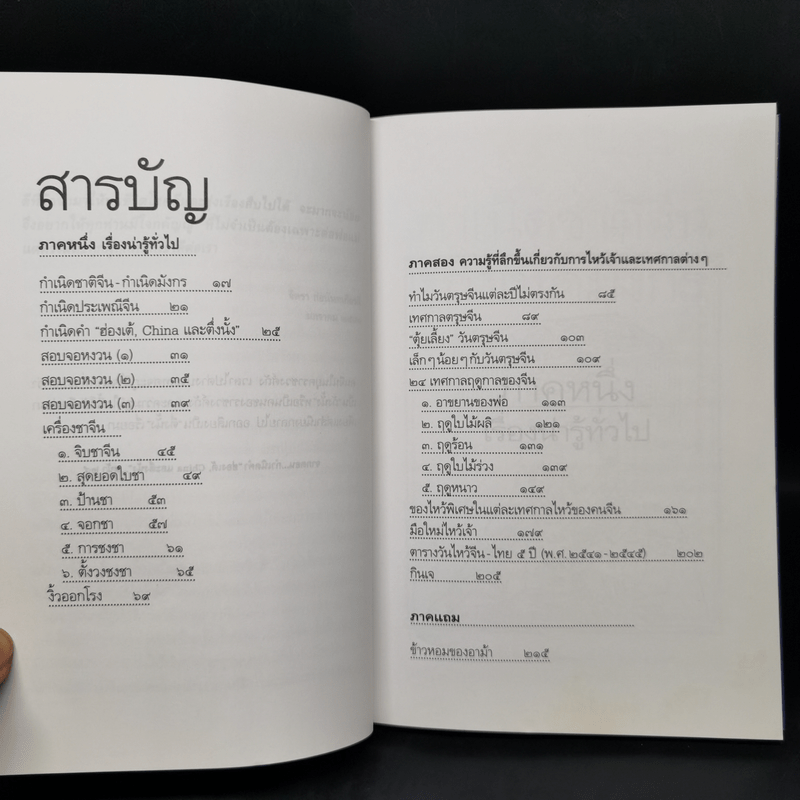 สารบัญ
ภาคหนึ่ง เรื่องน่ารู้ทั่วไป
กำเนิดชาติจีน - กำเนิดมังกร ๑๗
กำเนิดประเพณีจีน ๒๑
กำเนิดคำ "ฮ่องเต้, China และตึ่งนั้ง" ๒๕
สอบจอหงวน (๑) ๓๑
สอบจอหงวน (๒) ๓๕
สอบจอหงวน (๓) ๓๙
เครื่องชาจีน
๑. จิบชาจีน ๔๕
๒. สุดยอดใบชา ๔๙
๓. ป้านชา ๕๓
๔. จอกชา ๕๗
๕. การชงชา ๖๑
๖. ตั้งวงชงชา ๖๕
งิ้วออกโรง ๖๙
ภาคสอง ความรู้ที่ลึกขึ้นเกี่ยวกับการไหว้เจ้าและเทศกาลต่าง ๆ
ทำไมวันตรุษจีนแต่ละปีไม่ตรงกัน ๘๕
เทศกาลตรุษจีน ๘๙
"ตุ้ยเลี้ยง" วันตรุษจีน ๑๐๓
เล็ก ๆ น้อย ๆ กับวันตรุษจีน ๑๐๙
๒๔ เทศกาลฤดูกาลของจีน
๑. อาขยานของพ่อ ๑๑๓
๒. ฤดูใบไม้ผลิ ๑๒๑
๓. ฤดูร้อน ๑๓๑
๔. ฤดูใบไม้ร่วง ๑๓๙
๕. ฤดูหนาว ๑๔๙
ของไหว้พิเศษในแต่ละเทศกาลไหว้ของคนจีน ๑๖๑
มือใหม่ไหว้เจ้า ๑๗๙
ตารางวันไหว้จีน - ไทย ๕ ปี (พ.ศ. ๒๕๔๑ - ๒๕๔๕) ๒๐๒
กินเจ ๒๐๕
ภาคแถม
ข้าวหอมของอาม้า ๒๑๕